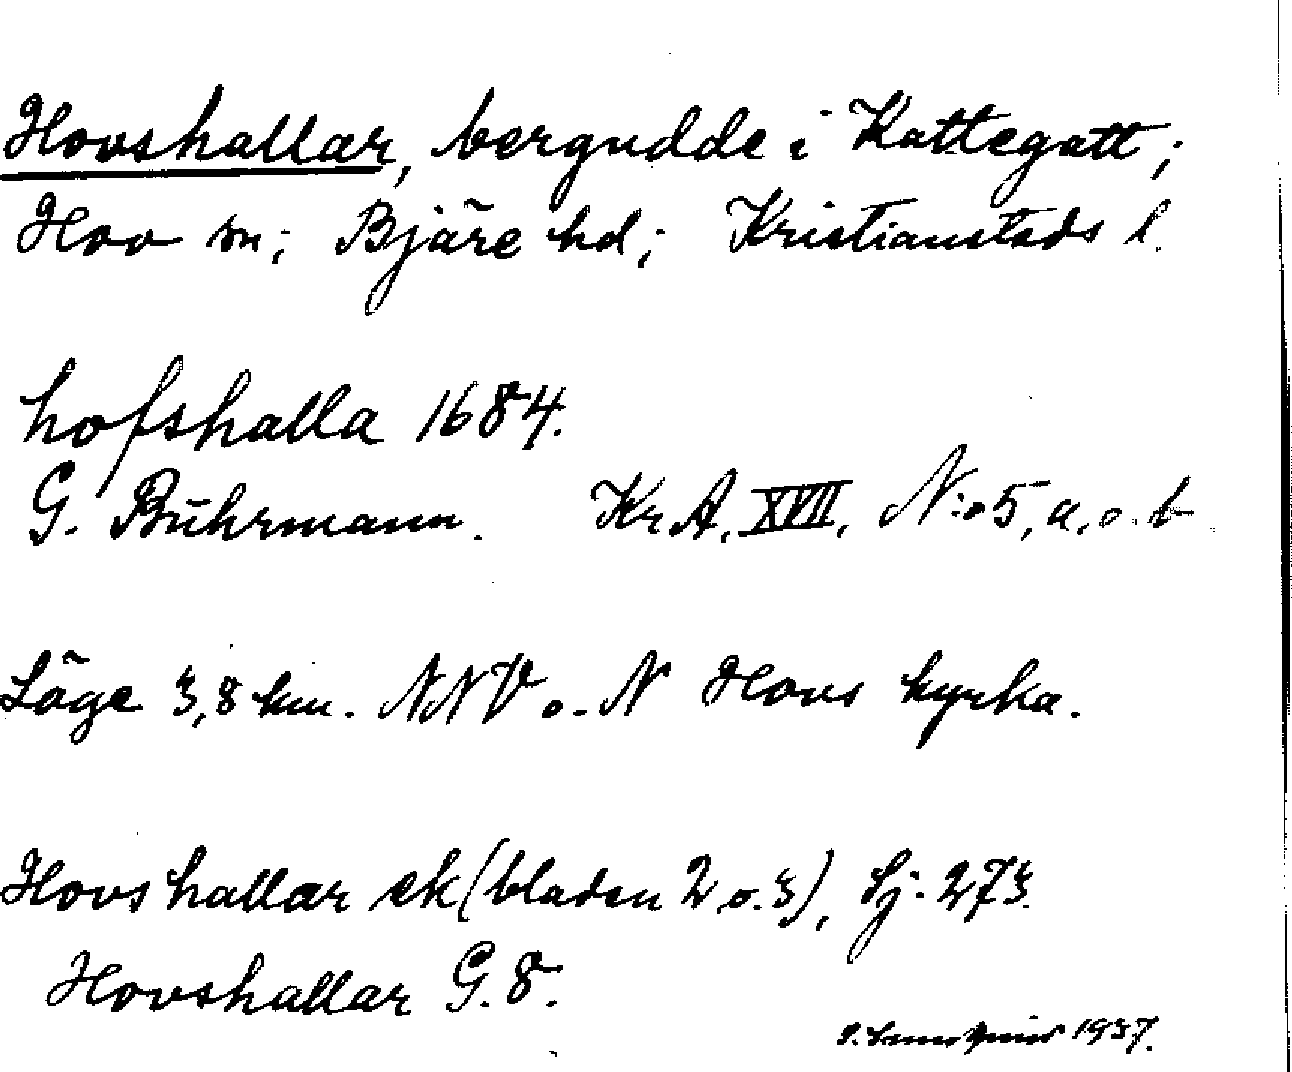 Hovshallar, bergudde i Kattegatt;
Hov sn; Bjäre hd; Kristianstads l.
hofshalla 1684.
G. Buhrmann. Kr. A. XVII, N:o 5, a. o. b
Läge 3,8 km. NNV o. N Hovs kyrka.
Hovshallar ek (bladen 2 o. 3), Sj. 273.
Hovshallar G. 8.
1937.